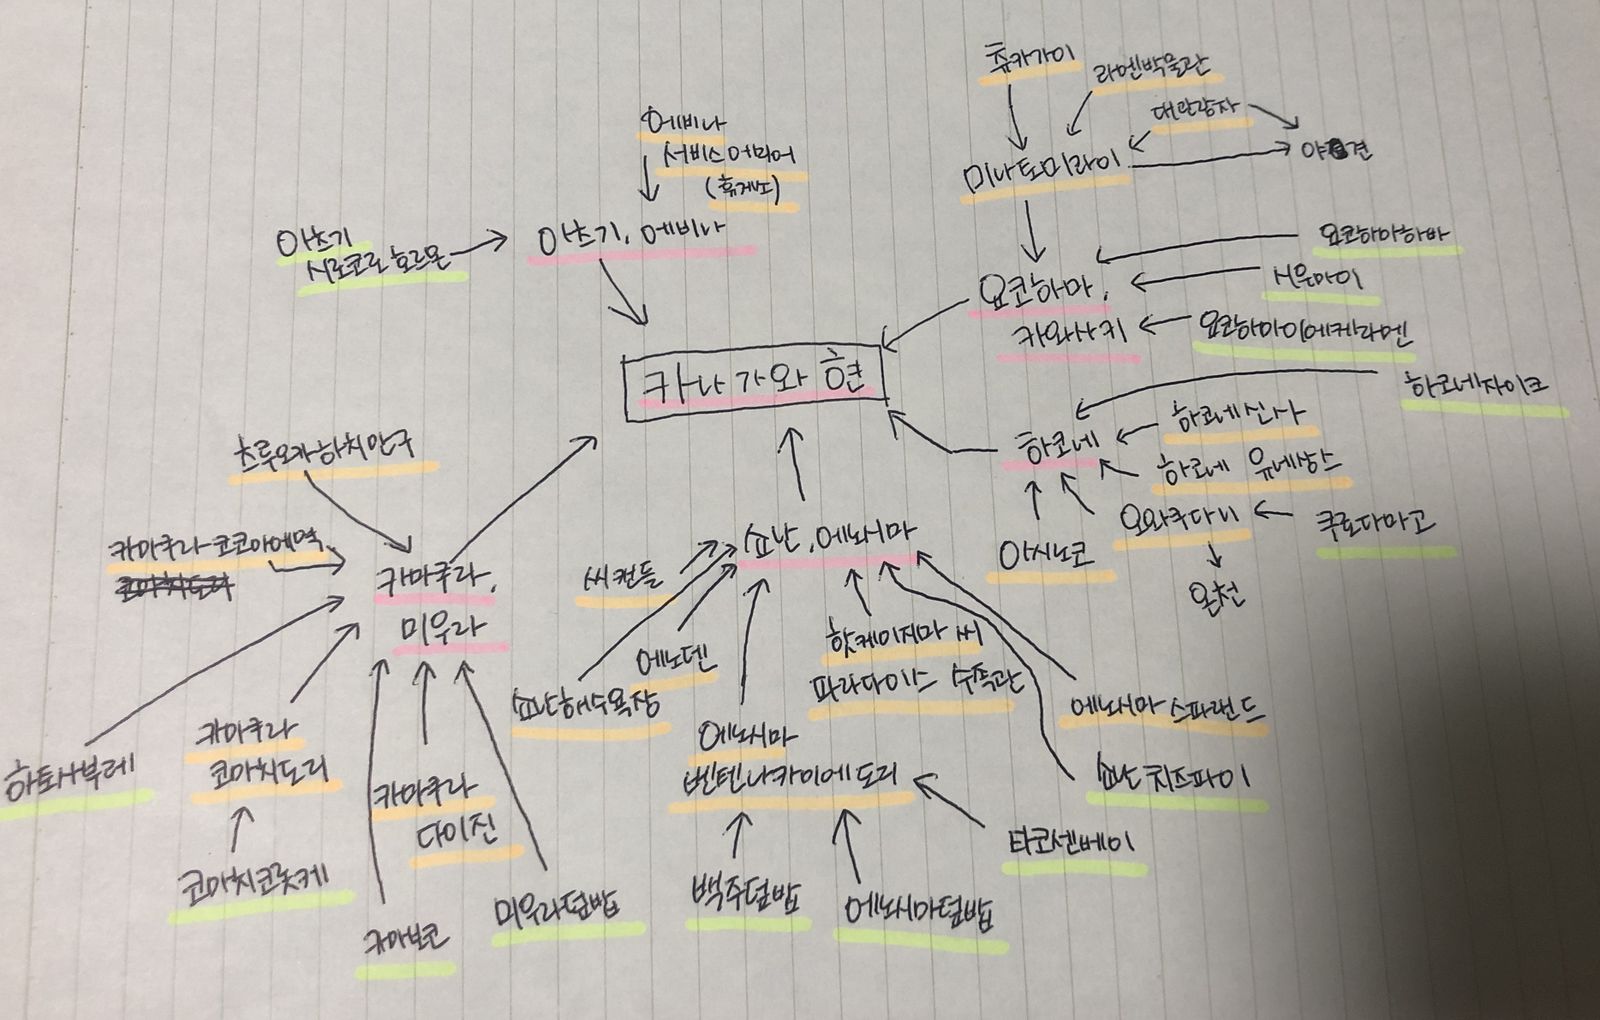 츄카가이
라멘박물관
대관람차
야경
미나토미라이
에비나
서비스에리어
(휴게소)
아츠기
시로코로 호르몬
아츠기, 에비나
요코하마,
카와사키
요코하마하바
시우마이
요코하마이에케라멘
카나가와 현
하코네자이크
하코네신사
하코네
하코네 유네상스
오와쿠다니
쿠로다마고
아시노코
온천
츠루오카하치만구
카마쿠라코코마에역
카마쿠라,
미우라
쇼난, 에노시마
씨캔들
에노덴
쇼난해수욕장
핫케이지마 씨
파라다이스 수족관
에노시마 스파랜드
하토사부레
카마쿠라
코마치도리
카마쿠라
다이진
에노시마
벤텐나카미세도리
쇼난치즈파이
타코센베이
코마치코롯케
카마보코
미우라덮밥
백주덮밥
에노시마덮밥